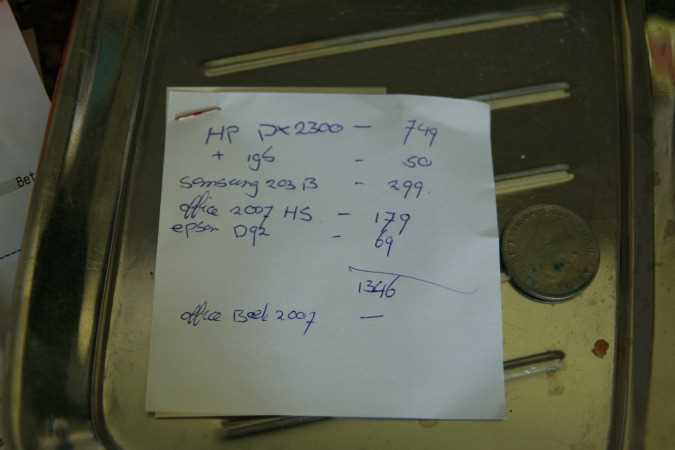 Bet
HP DX2300 - 749
+ 1gb - 50
Samsung 203B - 299
office 2007 HS - 179
epson D92 - 69
1346
office Boek 2007 -